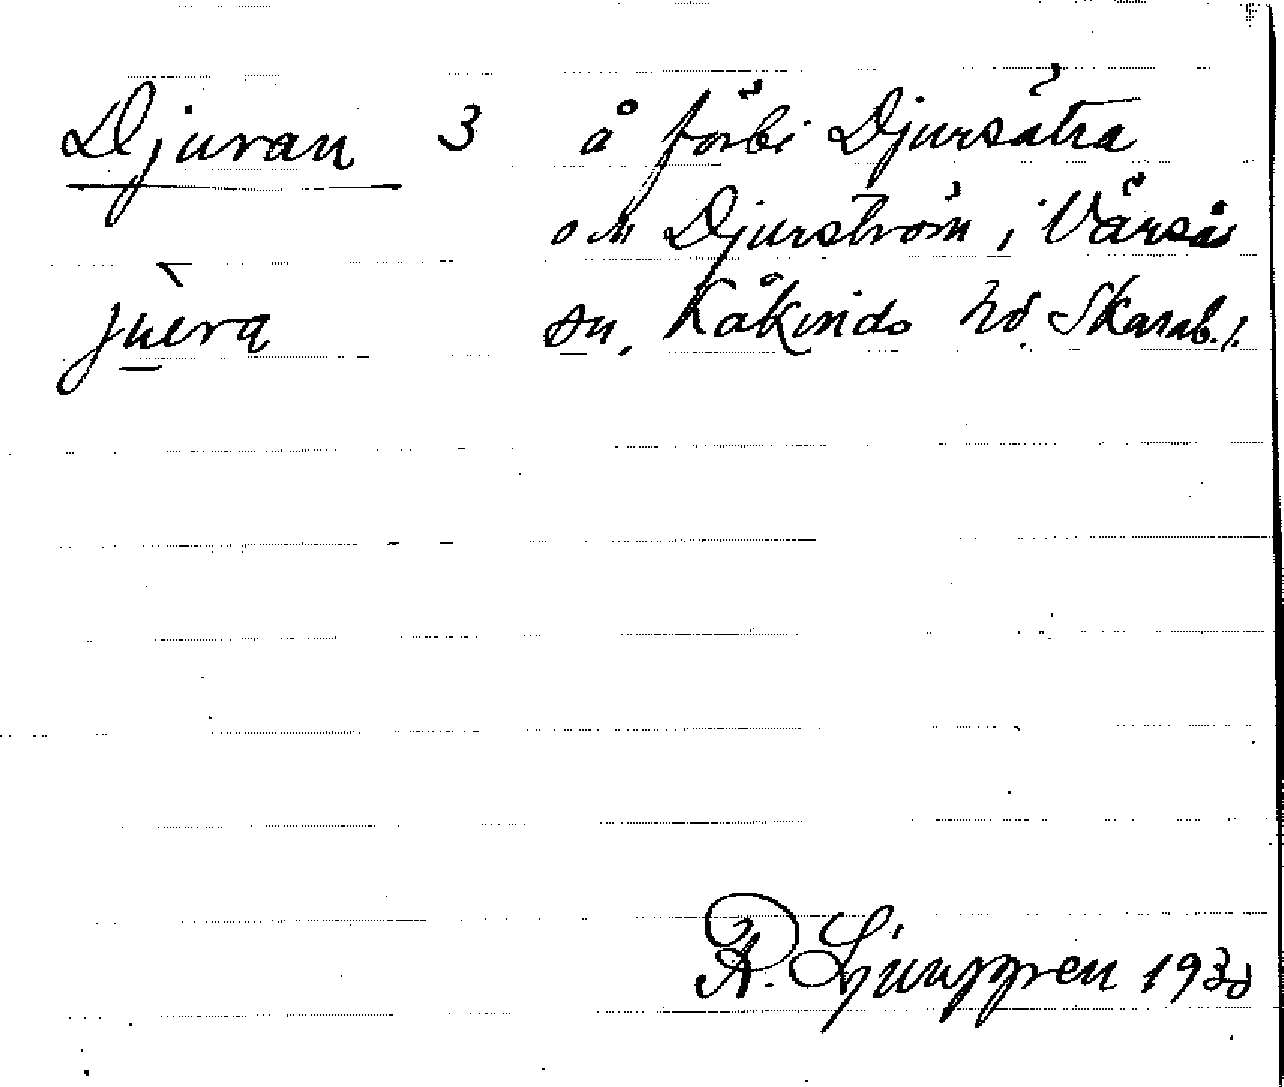 Djuran 3 å förbi Djursätra
o M Djurström i Värsås
juèra sn, Kåkinds hd Skarab. l.
R. Ljunggren 1930